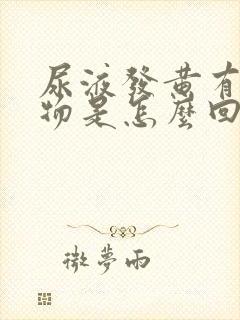 尿液發黄有
物是怎麼回
微夢雨